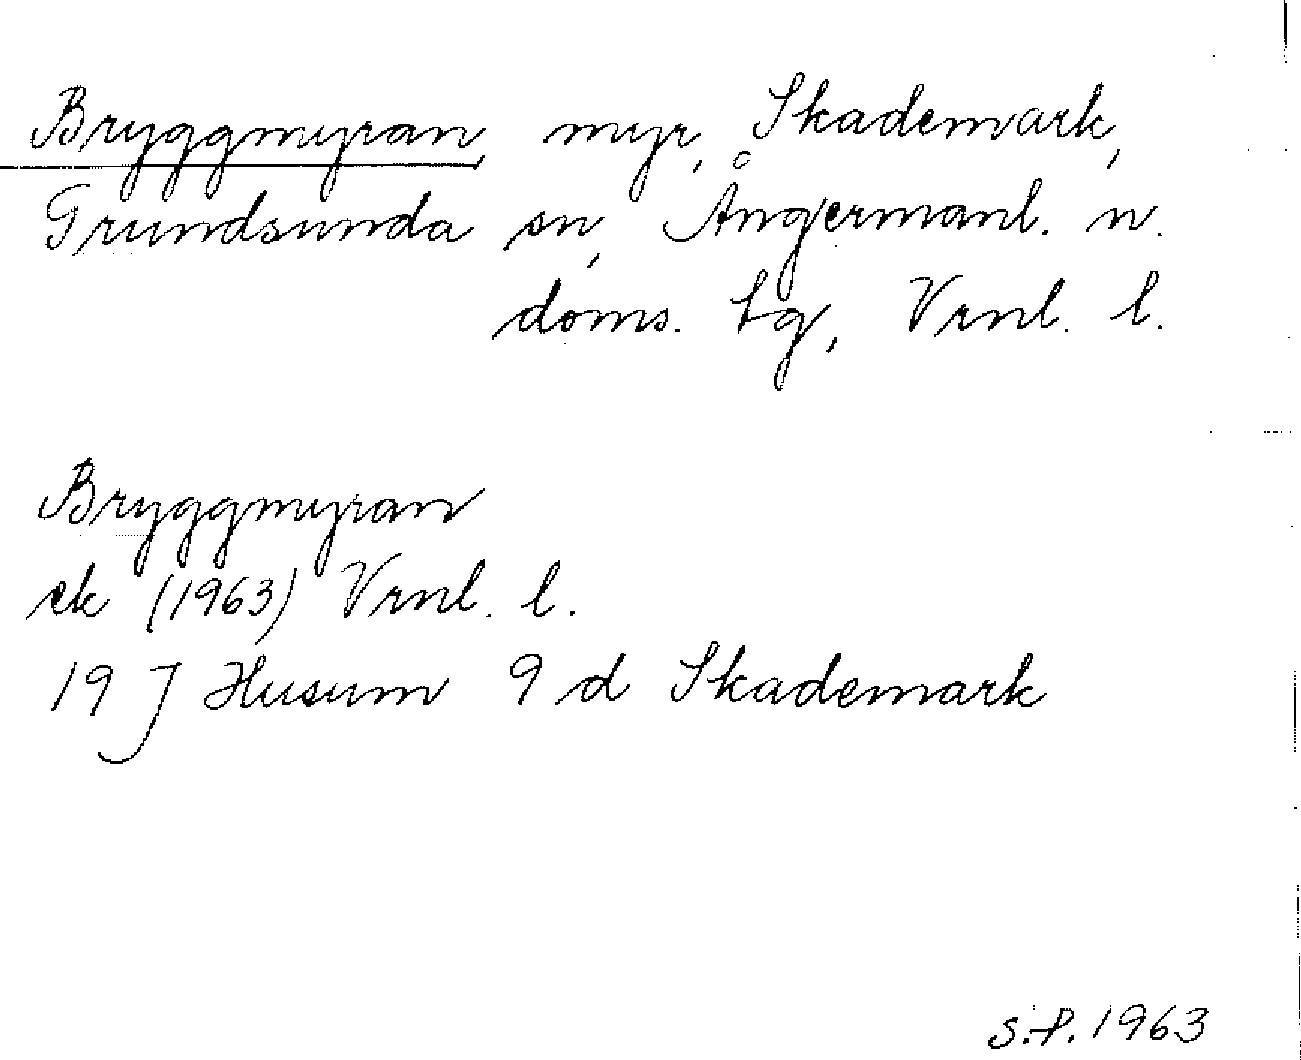 Bryggmyran, myr, Skademark,
Grundsunda sn, Ångermanl. n.
doms. tg, Vrnl. l.
Bryggmyran
ek (1963) Vrnl. l.
19 J Husum 9 d Skademark
S.P. 1963